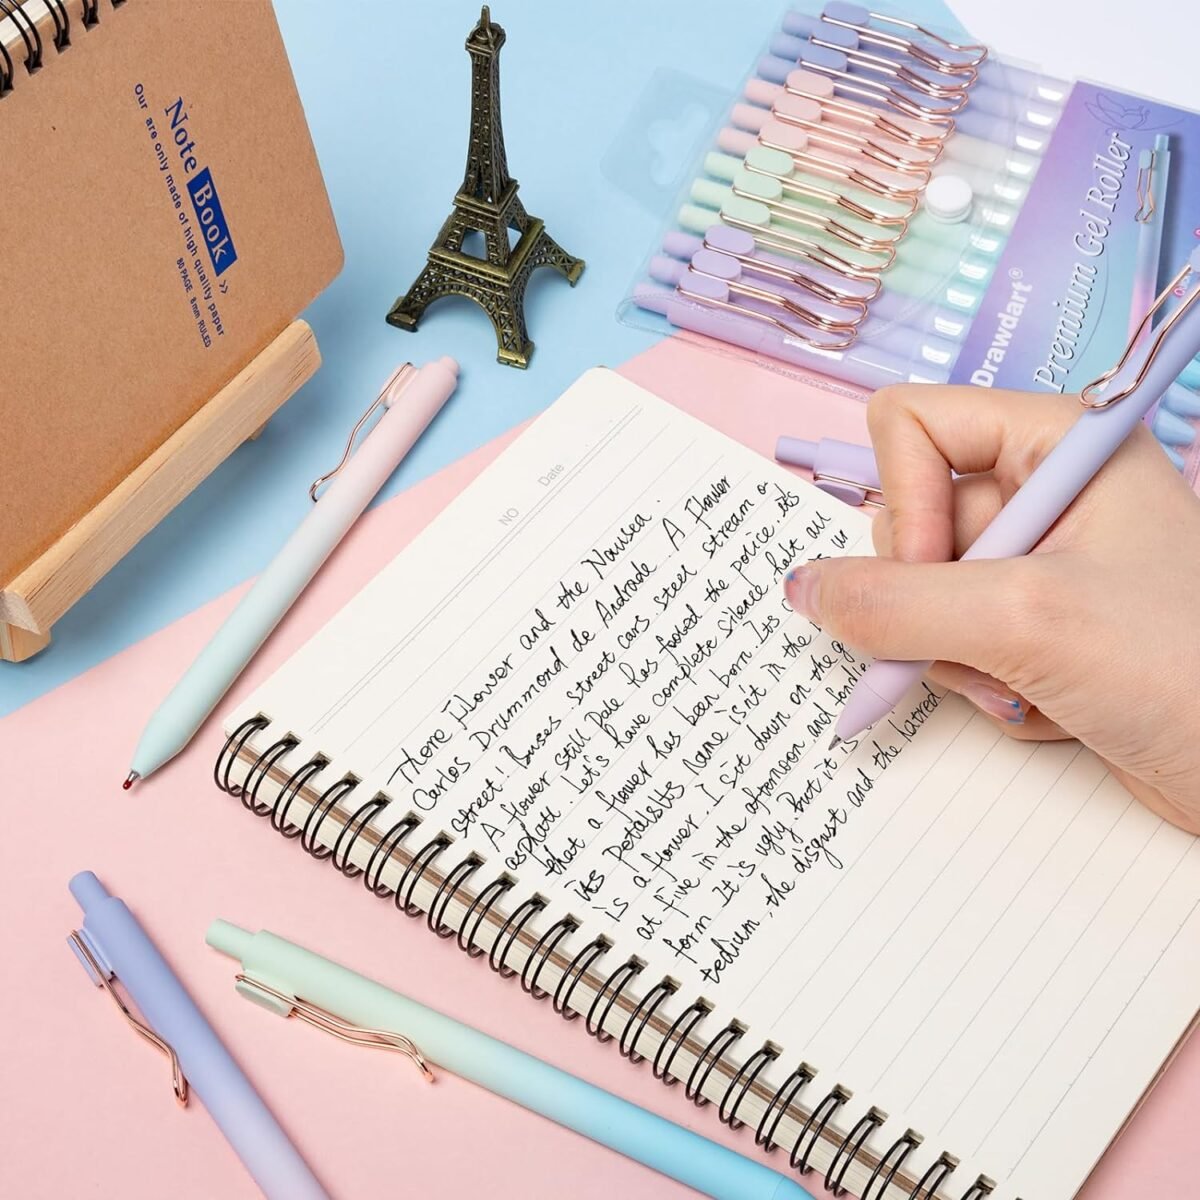 Note Book >>
Our are only made of high quality paper
80 PAGE 8mm RULED
Drawdart®
Premium Gel Roller
NO Date
Thore Flower and the Nausea.
Carlos Drummond de Andrade. A Flower
street! buses street cars steel stream o
A flower still Pale has fooled the police. it's
asphatt. Let's have complete silence halt all
that a flower has been born. Its in
its petalsIts name isn't in the
is a flower. I sit down on the g
at five in the afternoon and fondle
form It is ugly. but it is
tedium, the disgust and the hatred